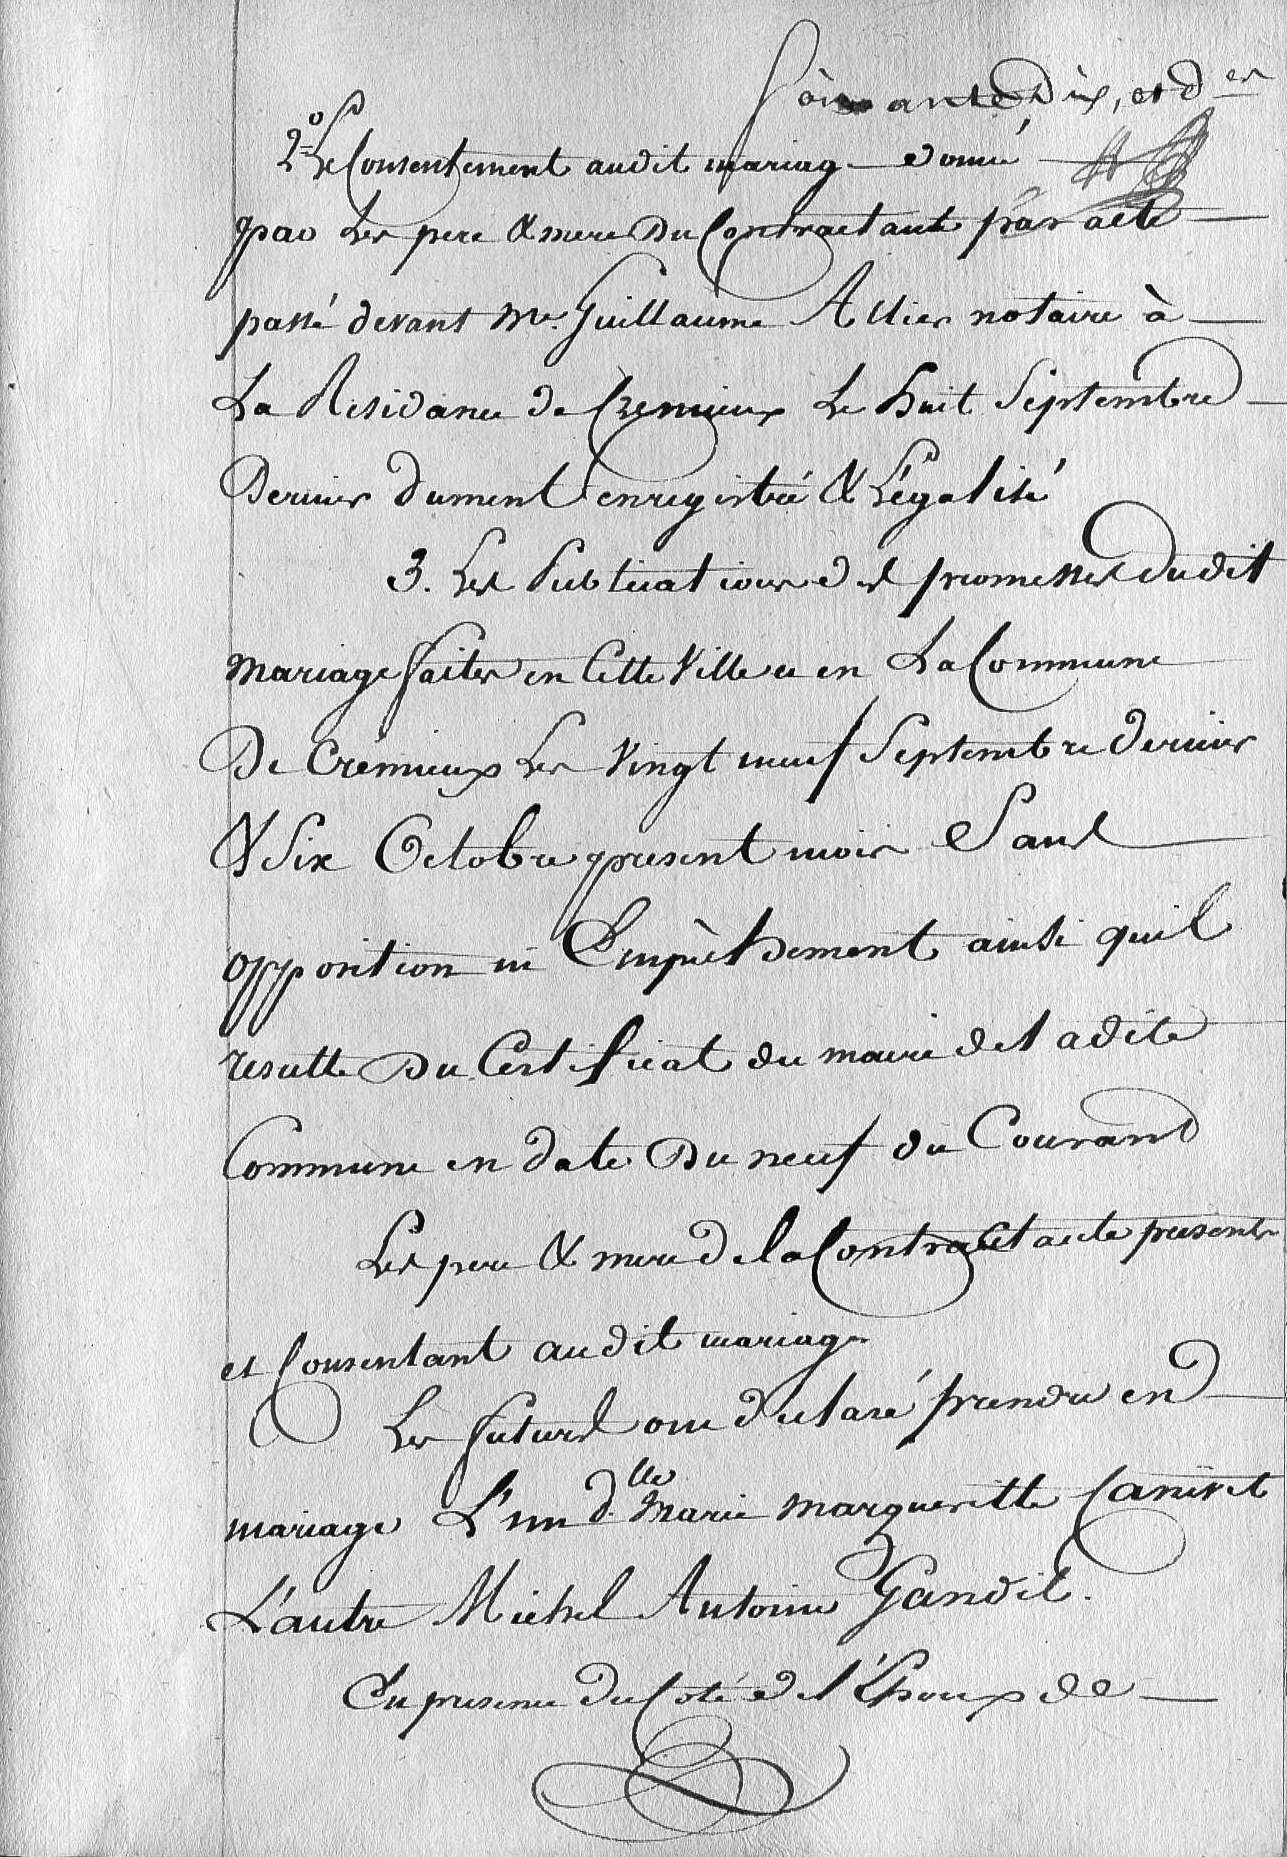 Soixante Dix, et der
2.° Le Consentement audit mariage donné
par Les pere & mere Du Contractant par acte
passé devant Me. Guillaume Allier notaire à
La Residance de Cremieux Le huit Septembre
Dernier dument enregistré & Légalisé
3. Les Publications des promesses dudit
mariage faites en Cette Ville et en La Commune
De Crémieux Les Vingt neuf Septembre dernier
& Six Octobre present mois Sans
opposition ni Empêchement ainsi quil
resulte Du Certificat du maire de Ladite
Commune en date Du neuf du Courant
Les pere & mere de la Contractante presents
et Consentant audit mariage
Les futurs ont declaré prendre en
mariage L'un d.lle Marie Margueritte Canivet
L'autre Michel Antoine Gandil.
En presence du Coté de l'Epoux de